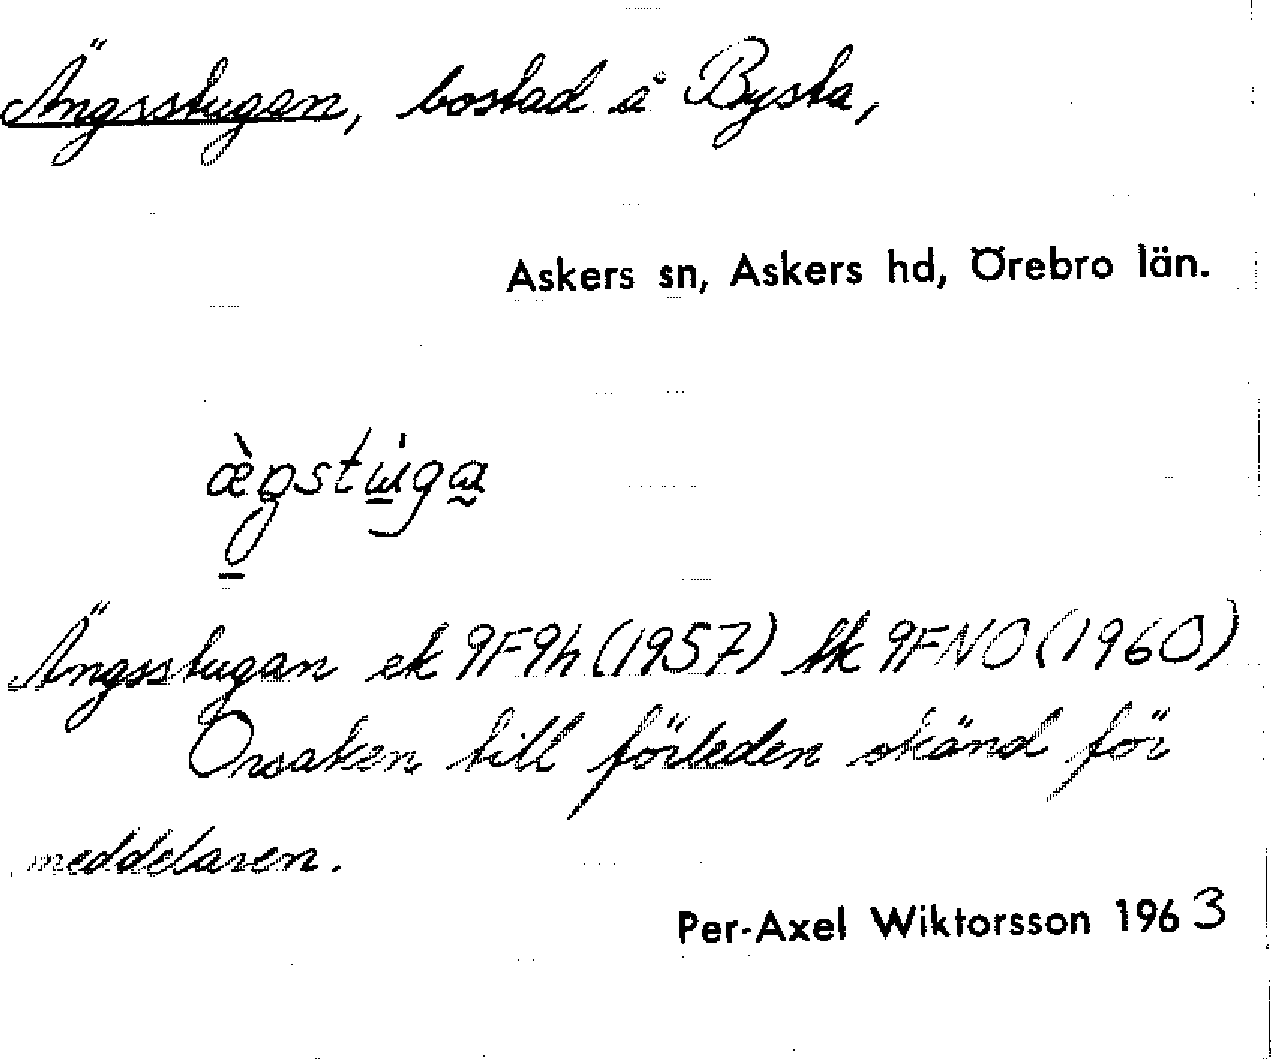 Ängsstugan, bostad å Bysta,
Askers sn, Askers hd, Örebro län.
Ängsstugan ek 9F9h (1957) tk 9FNO (1960)
Orsaken till förleden okänd för
meddelaren.
Per-Axel Wiktorsson 1963